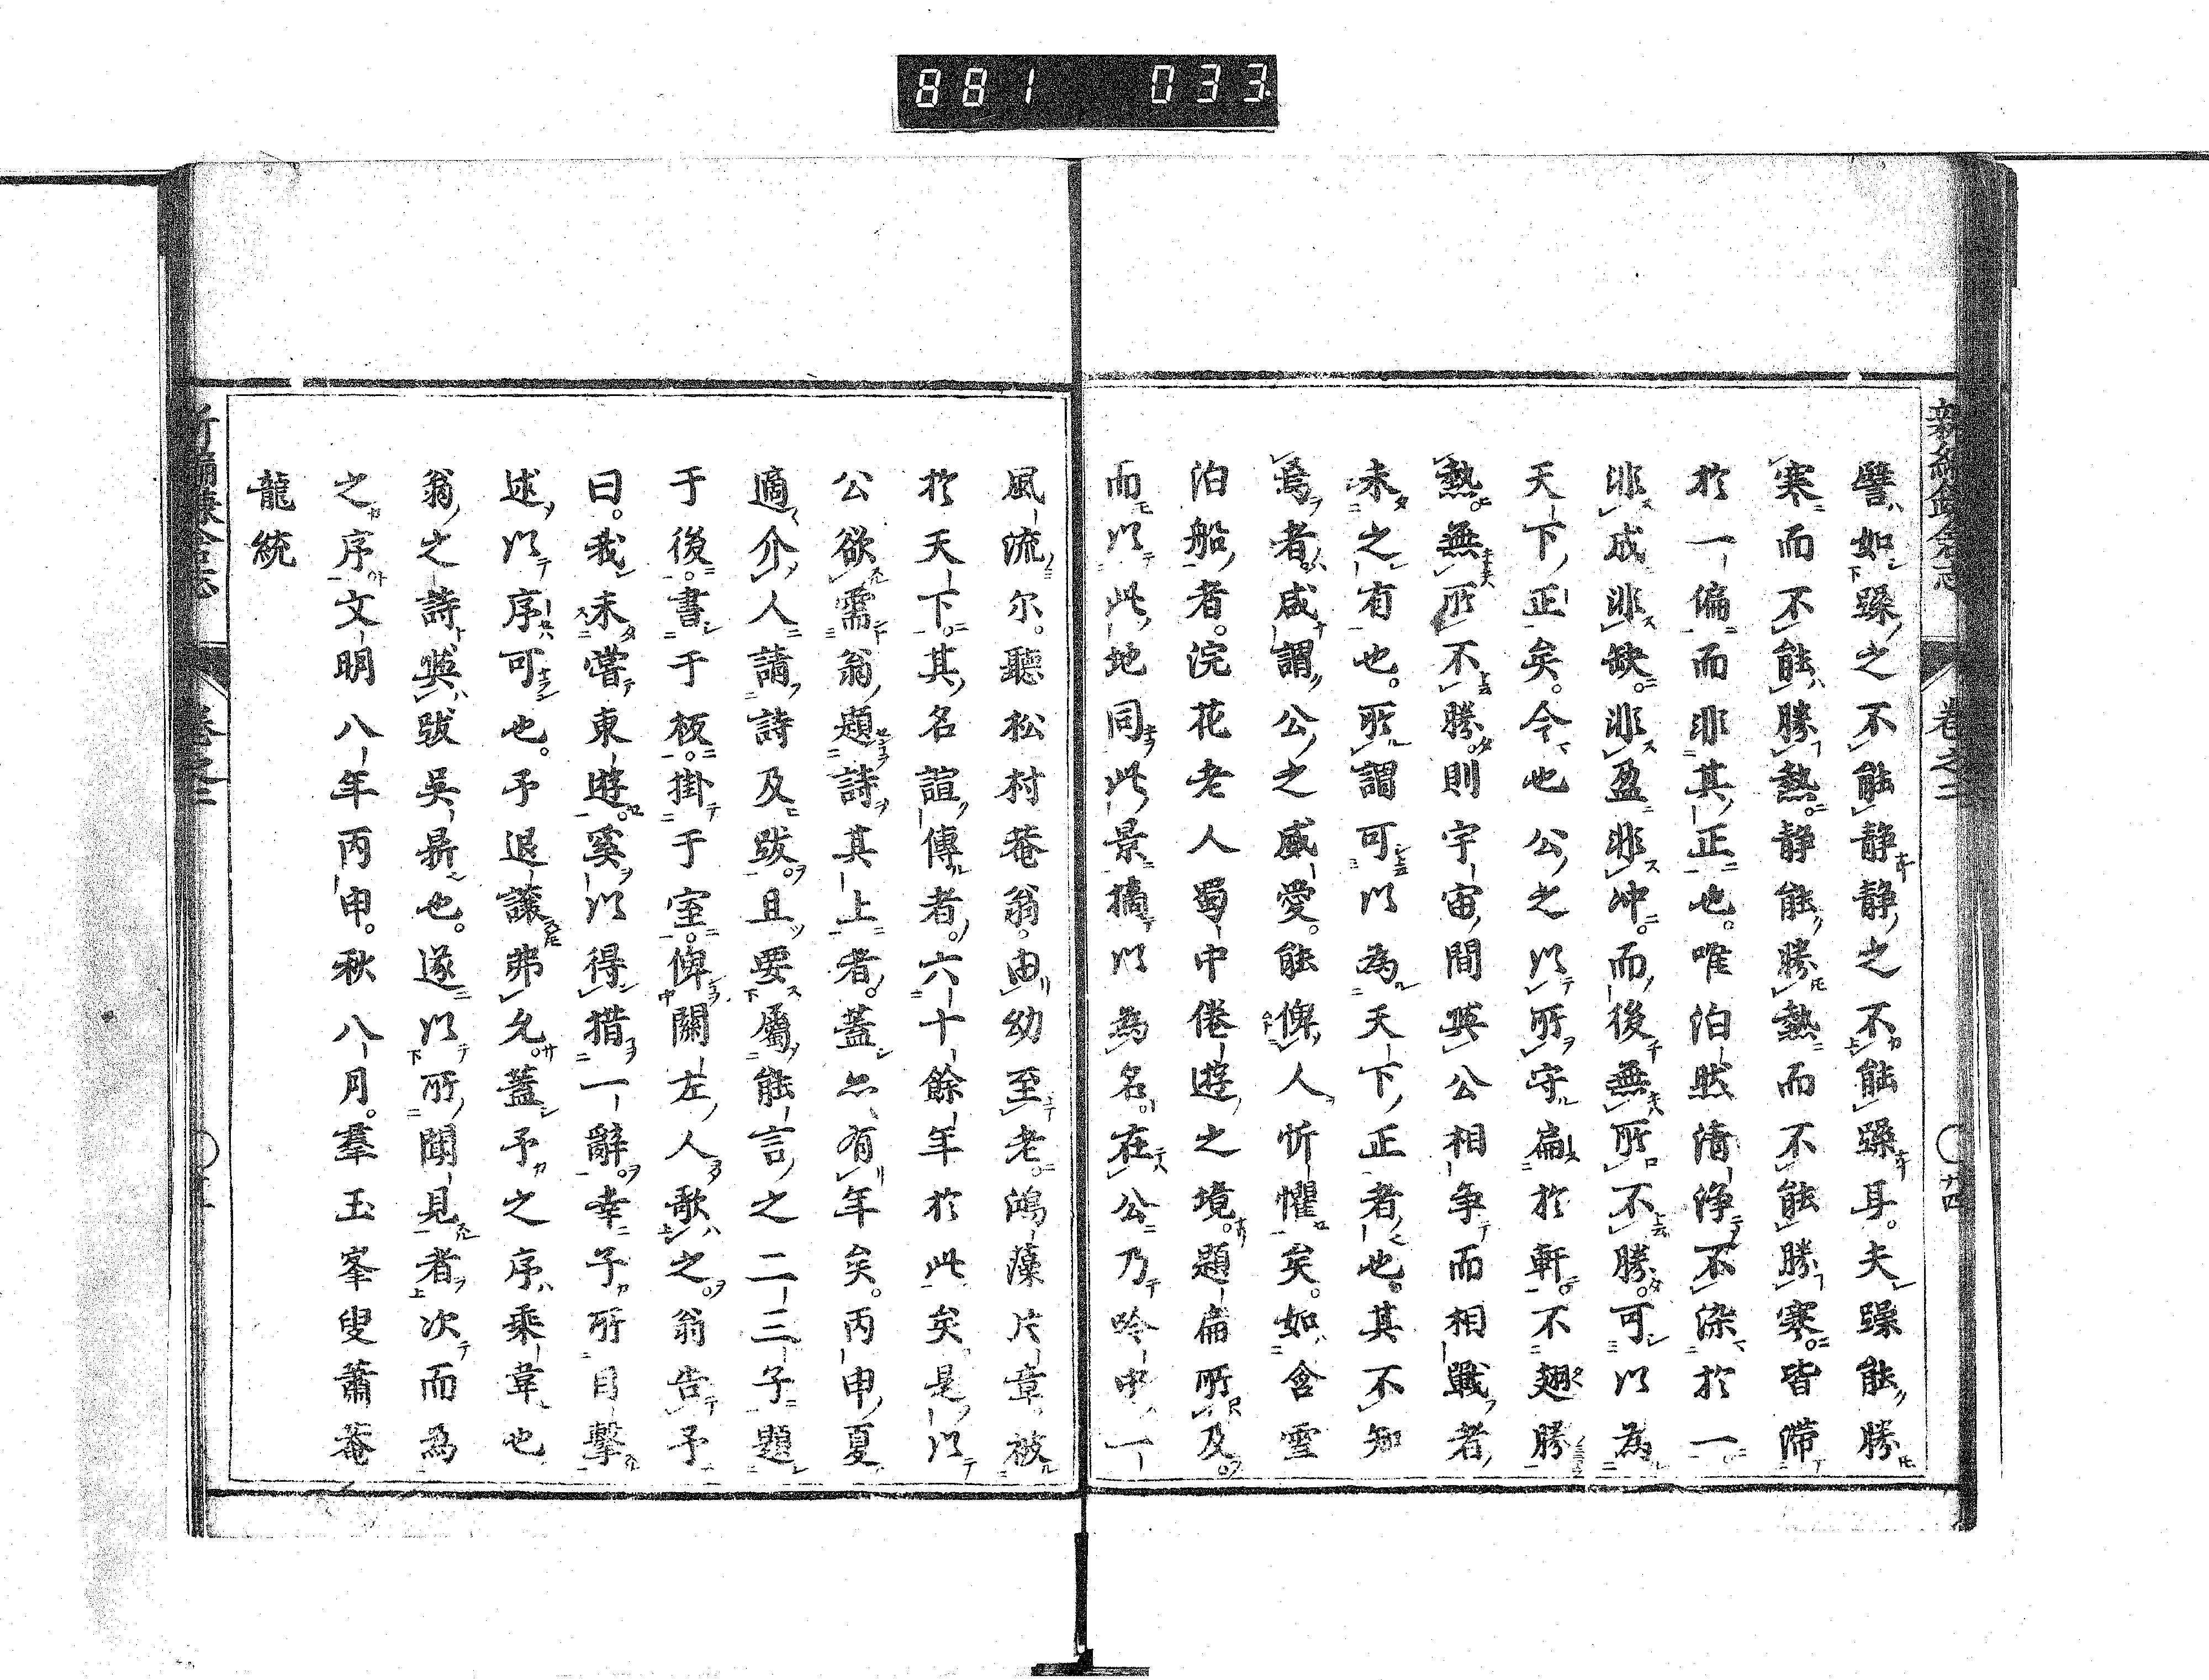 881 033
新編鎌倉志 卷之二 廿四
譬如躁之不能靜靜之不能躁耳。夫躁能勝
寒而不能勝熱。靜能勝熱而不能勝寒。皆滯
於一偏而非其正也。唯泊然清淨不染於一。
非成非缺。非盈非冲。而後無所不勝。可以為
天下正矣。今也公之以所守扁於軒。不翅勝
熱。無所不勝。則宇宙間與公相爭而相戰者
未之有也。所謂可以為天下正者也。其不知
焉者。咸謂公之威愛。能俾人忻懼矣。如含雪
泊船者。浣花老人蜀中倦遊之境。題扁所及。
而以此地同此景摘以為名。在公乃吟中一
風流尔。聽松村菴翁。由幼至老。鴻藻片章被
於天下。其名諠傳者。六十餘年於此矣。是以
公欲需翁題詩其上者。蓋亦有年矣。丙申夏
適介人請詩及跋。且要屬能言之二三子題
于後。書于板。掛于室。俾關左人歌之。翁告予
曰。我未嘗東遊。奚以得措一辭。幸子所目擊
述以序可也。予退讓弗允。蓋予之序乘韋也
翁之詩與跋吳鼎也。遂以所聞見者次而為
之序。文明八年丙申。秋八月。羣玉峯叟蕭菴
龍統
新編鎌倉志 卷之二